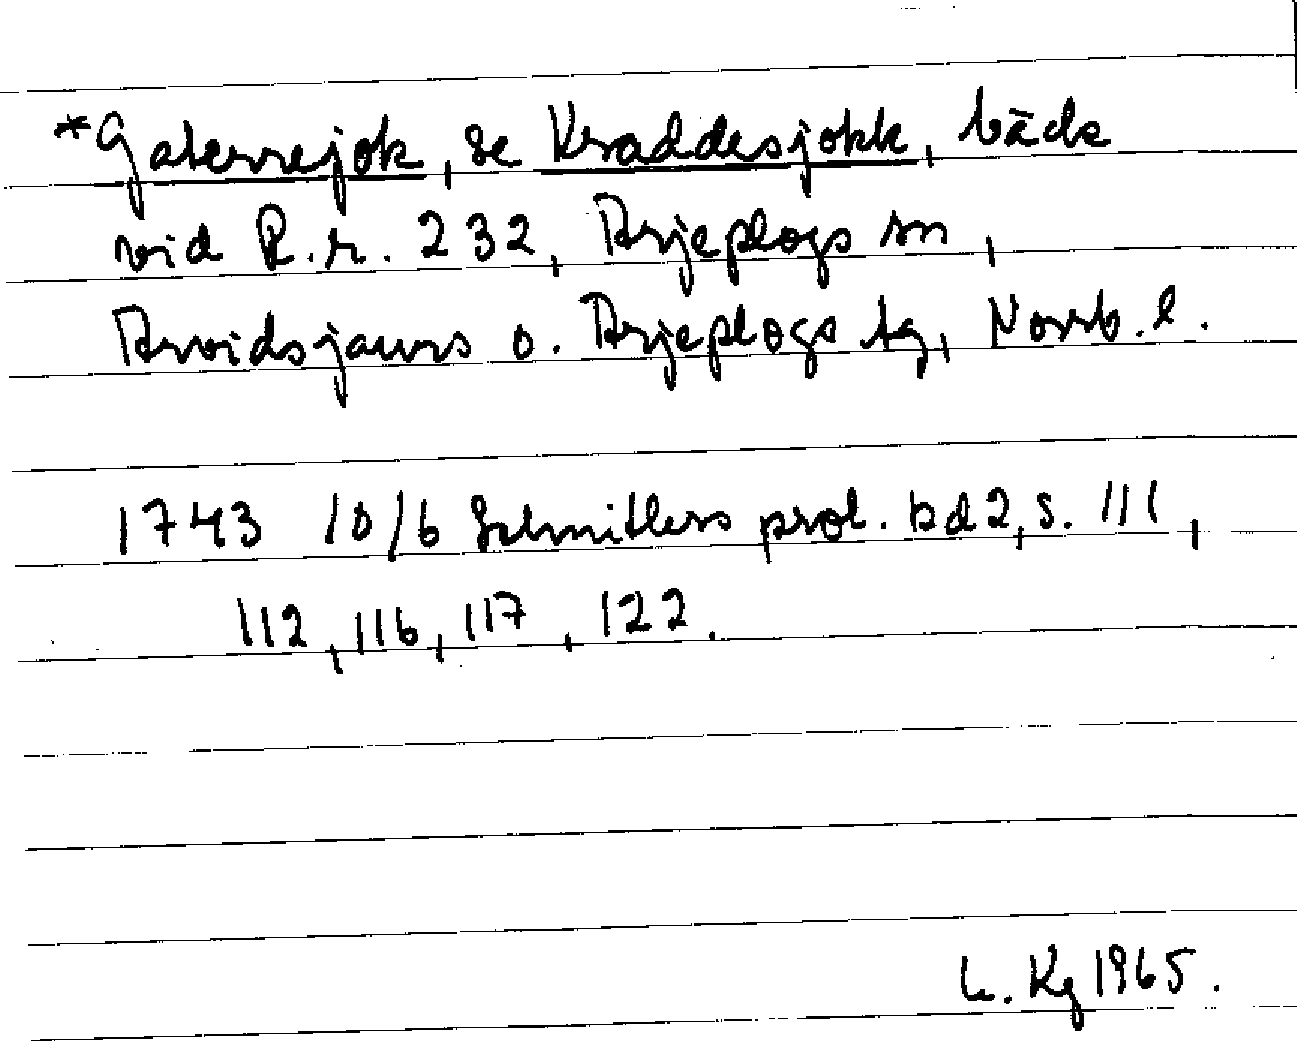 *Gaterrejok, se Kraddesjokk, bäck
vid R.r. 232, Arjeplogs sn,
Arvidsjaurs o. Arjeplogs tg, Norrb. l.
1743 10/6 Schnitlers prot. bd 2, s. 111,
112, 116, 117, 122.
Kg 1965.